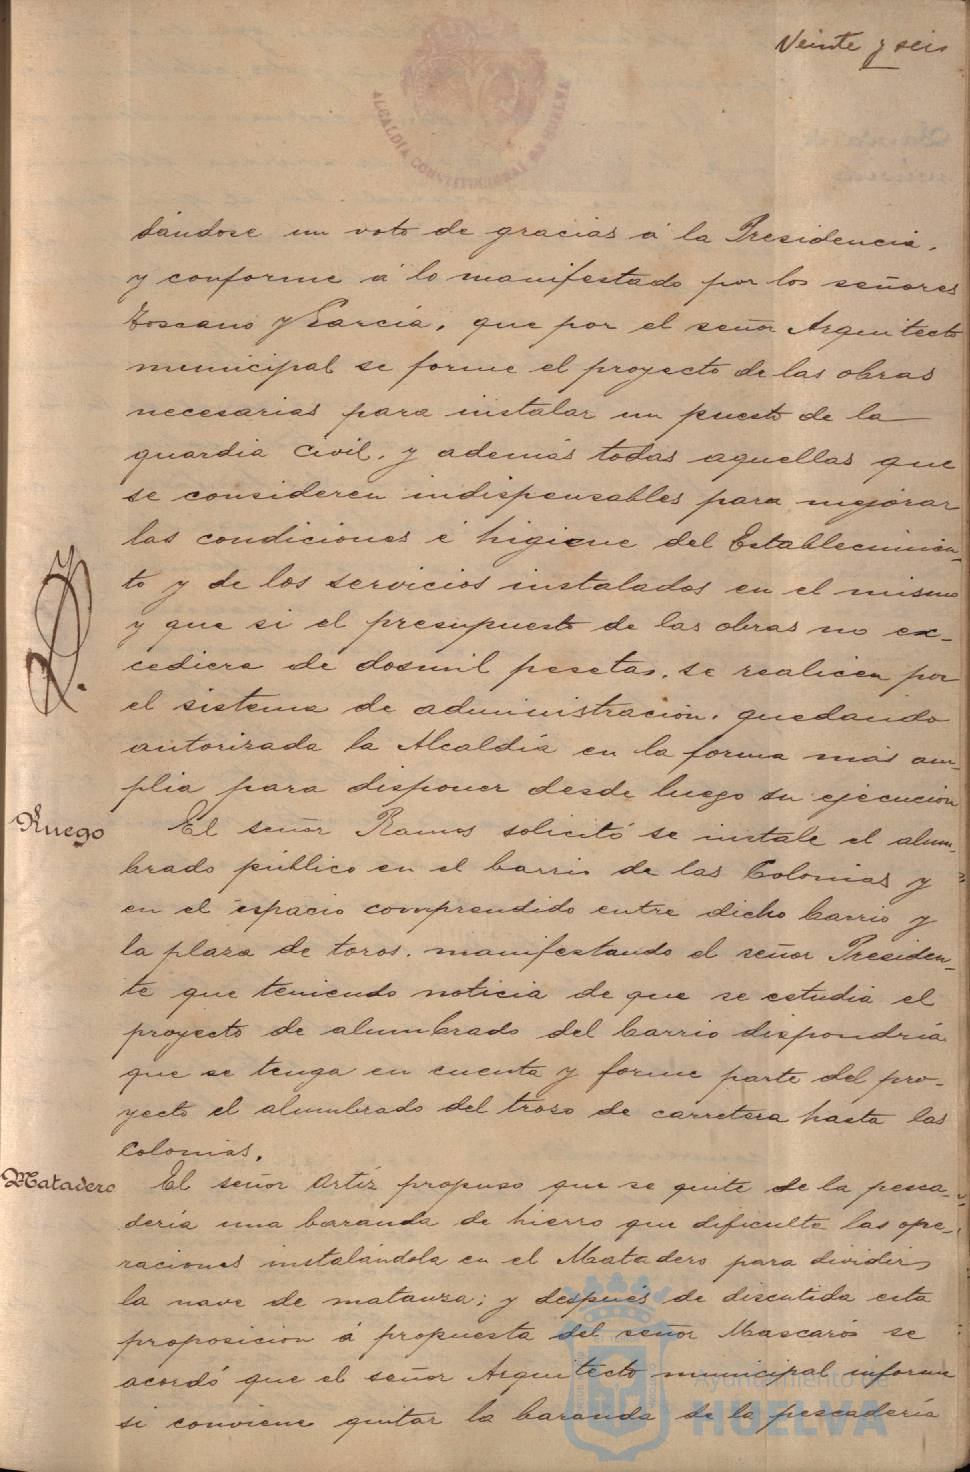 Veinte y seis
ALCALDIA CONSTITUCIONAL DE HUELVA
dándose un voto de gracias á la Presidencia,
y conforme á lo manifestado por los señores
Toscano y García, que por el señor Arquitecto
municipal se forme el proyecto de las obras
necesarias para instalar un puesto de la
guardia civil, y además todas aquellas que
se consideren indispensables para mejorar
las condiciones é higiene del Establecimien-
to y de los servicios instalados en el mismo
y que si el presupuesto de las obras no ex-
cediera de dosmil pesetas, se realicen por
el sistema de administración, quedando
autorizada la Alcaldía en la forma más am-
plia para disponer desde luego su ejecución
Ruego
El señor Ramos solicitó se instale el alum-
brado público en el barrio de las Colonias y
en el espacio comprendido entre dicho barrio y
la plaza de toros, manifestando el señor Presiden-
te que teniendo noticia de que se estudia el
proyecto de alumbrado del barrio dispondría
que se tenga en cuenta y forme parte del pro-
yecto el alumbrado del trozo de carretera hasta las
colonias.
Matadero
El señor Ortíz propuso que se quite de la pesca-
dería una baranda de hierro que dificulta las ope-
raciones instalándola en el Matadero para dividir
la nave de matanza; y después de discutida esta
proposición á propuesta del señor Mascarós se
acordó que el señor Arquitecto municipal informe
si conviene quitar la baranda de la pescadería
Ayuntamiento de
HUELVA